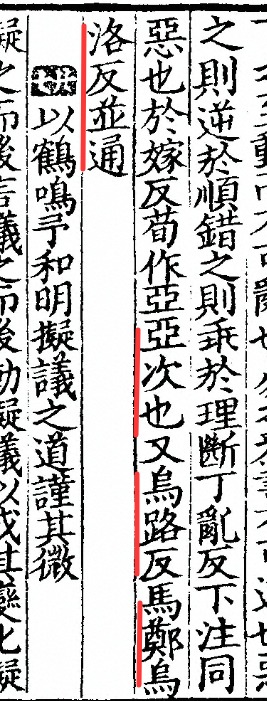 之則逆於順錯之則乖於理斷丁亂反下注同
惡也於嫁反荀作亞亞次也又烏路反馬鄭烏
洛反並通
以鶴鳴子和明擬議之道謹其微
擬之而後言議之而後動擬議以成其變化擬